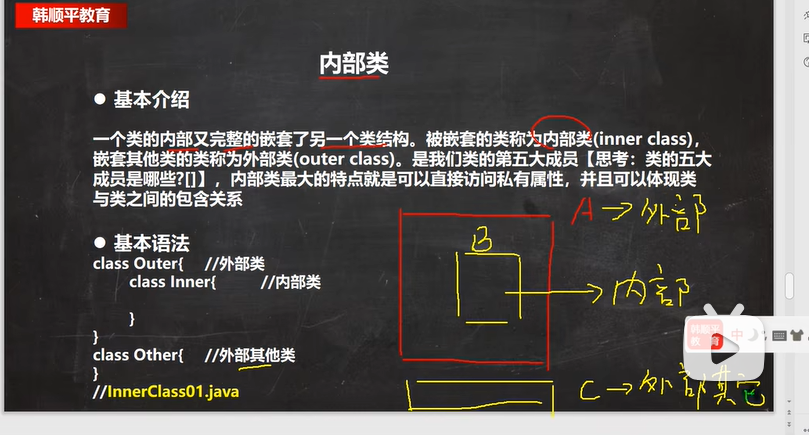 韩顺平教育
内部类
● 基本介绍
一个类的内部又完整的嵌套了另一个类结构。被嵌套的类称为内部类(inner class)，
嵌套其他类的类称为外部类(outer class)。是我们类的第五大成员【思考：类的五大
成员是哪些?[]】，内部类最大的特点就是可以直接访问私有属性，并且可以体现类
与类之间的包含关系
A → 外部
B
● 基本语法
class Outer{ //外部类
class Inner{ //内部类
→ 内部
}
}
class Other{ //外部其他类
}
//InnerClass01.java
C → 外部其它
韩顺平
教育
中